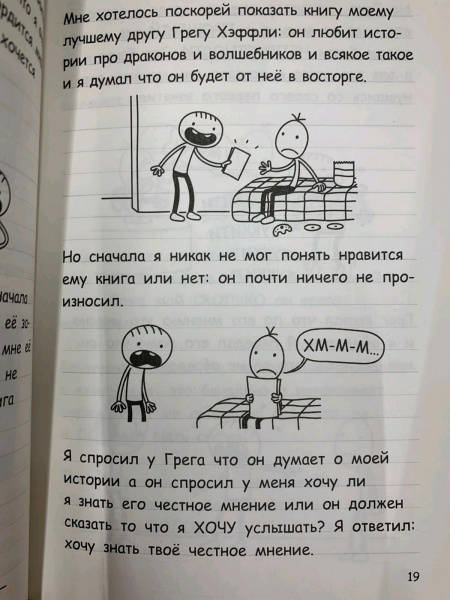 Мне хотелось поскорей показать книгу моему
лучшему другу Грегу Хэффли: он любит исто-
рии про драконов и волшебников и всякое такое
и я думал что он будет от неё в восторге.
Но сначала я никак не мог понять нравится
ему книга или нет: он почти ничего не про-
износил.
ХМ-М-М...
Я спросил у Грега что он думает о моей
истории а он спросил у меня хочу ли
я знать его честное мнение или он должен
сказать то что я ХОЧУ услышать? Я ответил:
хочу знать твоё честное мнение.
19